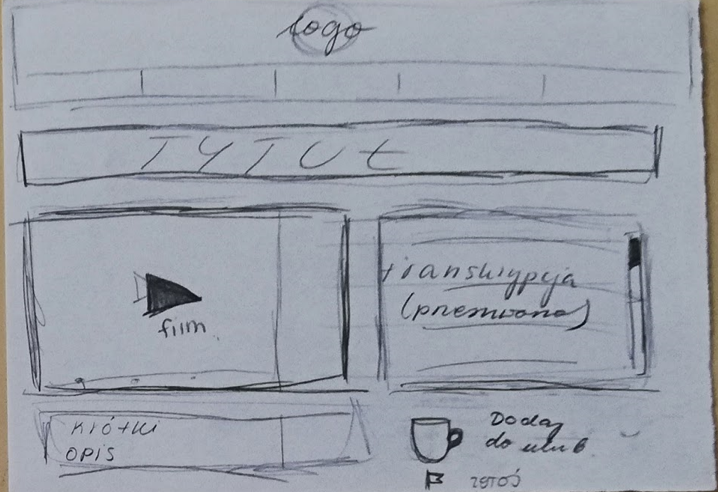 logo
TYTUŁ
film
transkrypcja
(przewijana)
KRÓTKI
OPIS
Dodaj
do ulub
zgłoś